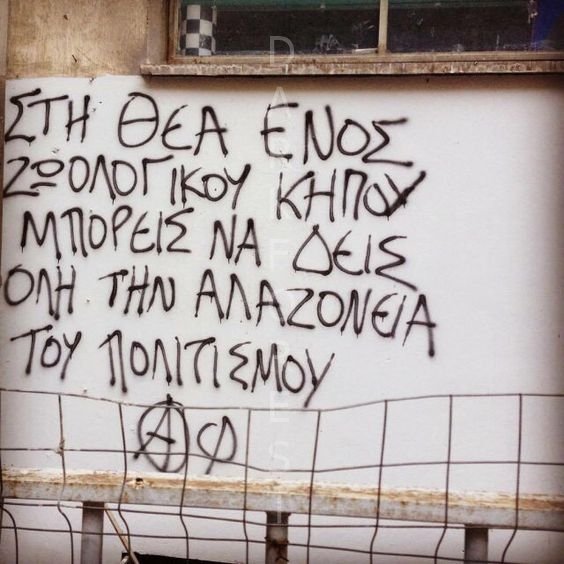 ΣΤΗ ΘΕΑ ΕΝΟΣ
ΖΩΟΛΟΓΙΚΟΥ ΚΗΠΟΥ
ΜΠΟΡΕΙΣ ΝΑ ΔΕΙΣ
ΟΛΗ ΤΗΝ ΑΛΑΖΟΝΕΙΑ
ΤΟΥ ΠΟΛΙΤΙΣΜΟΥ
Α φ